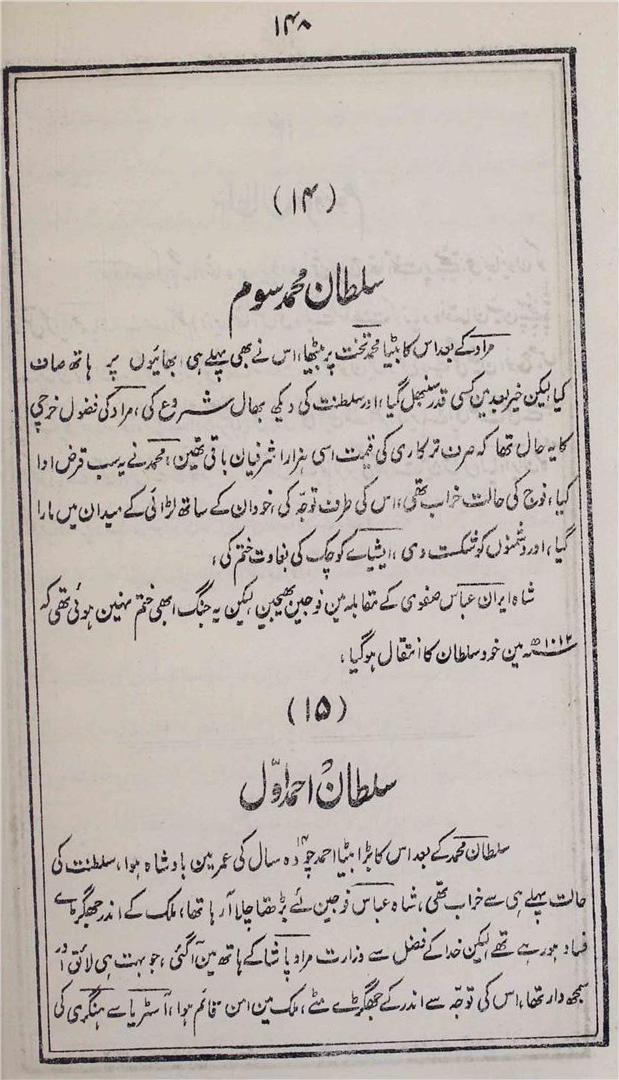 ۱۴۸
(۱۴)
سلطان محمد سوم
مراد کے بعد اس کا بیٹا محمد تخت پر بیٹھا، اس نے بھی پہلے ہی بھائیوں پر ہاتھ صاف
کیا لیکن خیر بعد مین کسی قدر سنبھل گیا، اور سلطنت کی دیکھ بھال شروع کی، مراد کی فضول خرچی
کا یہ حال تھا کہ صرف ترکاری کی قیمت اسی ہزار اشرفیان باقی تھین، محمد نے یہ سب قرض ادا
کیا، فوج کی حالت خراب تھی، اس کی طرف توجہ کی، خود ان کے ساتھ لڑائی کے میدان میں مارا
گیا، اور دشمنوں کو شکست دی، ایشیاے کوچک کی بغاوت ختم کی،
شاہ ایران عباس صفوی کے مقابلہ مین فوجین بھیجین لیکن یہ جنگ ابھی ختم نہین ہوئی تھی کہ
۱۰۱۲ھ مین خود سلطان کا انتقال ہوگیا،
(۱۵)
سلطان احمد اوّل
سلطان محمد کے بعد اس کا بڑا بیٹا احمد چودہ ۱۴ سال کی عمر مین بادشاہ ہوا، سلطنت کی
حالت پہلے ہی سے خراب تھی، شاہ عباس فوجین لئے بڑھتا چلا آرہا تھا، ملک کے اندر جھگڑے
فساد ہورہے تھے لیکن خدا کے فضل سے وزارت مراد پاشا کے ہاتھ مین آگئی، جو بہت ہی لائق اور
سمجھ دار تھا، اس کی توجہ سے اندر کے جھگڑے مٹے، ملک مین امن قائم ہوا، آسٹریا سے ہنگری کی